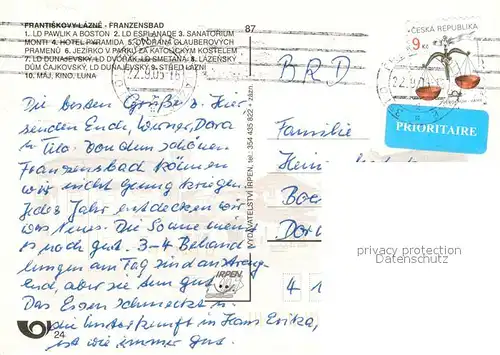 FRANTIŠKOVY LÁZNĚ - FRANZENSBAD
1. LD PAWLIK A BOSTON 2. LD ESPLANADE 3. SANATORIUM
MONTI 4. HOTEL PYRAMIDA 5. DVORANA GLAUBEROVÝCH
PRAMENŮ 6. JEZÍRKO V PARKU ZA KATOLICKÝM KOSTELEM
7. LD DUNAJEVSKÝ, LD DVOŘÁK, LD SMETANA 8. LÁZEŇSKÝ
DŮM ČAJKOVSKÝ, LD DUNAJEVSKÝ 9. STŘED LÁZNÍ
10. MÁJ, KINO, LUNA
87
22.9.05
ČESKÁ REPUBLIKA
9 Kč
22.9.
PRIORITAIRE
BRD
Familie
Hein
Bo
Do
41
Die besten Grüße v. hier
senden Euch, Werner, Dora
u. Tilo. Von dem schönen
Franzensbad können
wir nicht genug kriegen.
Jedes Jahr entdecken wir
was Neues. Die Sonne meint
es noch gut. 3-4 Behand
lungen am Tag sind anstreng
end, aber sie tun gut.
Das Essen schmeckt u.
die Unterkunft in Haus Erika,
ist wie immer gut.
VYDAVATELSTVÍ IRPEN, tel. 354 435 822 • zázn.
IRPEN
24
privacy protection
Datenschutz